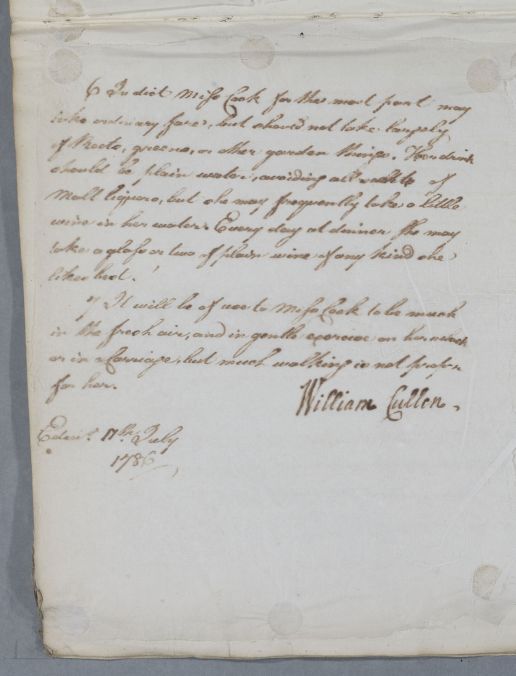 6 In diet Miss Cook for the most part may
take ordinary fare, but should not take largely
of Roots, greens, or other garden things. Her drink
should be plain water, avoiding all of
Malt liquors, but she may frequently take a little
wine in her water. Every day at dinner she may
take a glass or two of plain wine of any kind she
likes best.
7 It will be of use to Miss Cook to be much
in the fresh air, and in gentle exercise on horseback
or in a Carriage, but much walking is not proper
for her.
William Cullen.
Edinr. 17th. July
1786